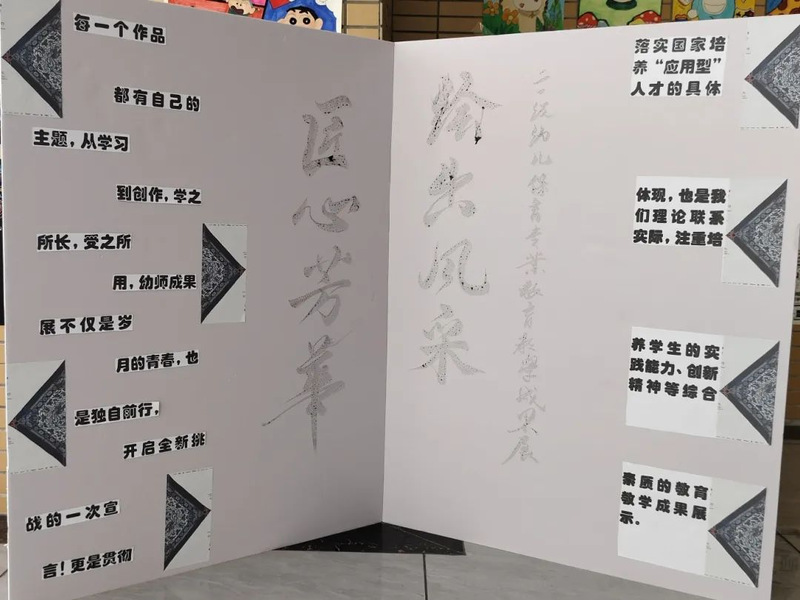 每一个作品
都有自己的
主题，从学习
到创作，学之
所长，受之所
用，幼师成果
展不仅是岁
月的青春，也
是独自前行，
开启全新挑
战的一次宣
言！更是贯彻
匠心芳華
绘出风采
二一级幼儿保育专业教育教学成果展
落实国家培
养“应用型”
人才的具体
体现，也是我
们理论联系
实际，注重培
养学生的实
践能力、创新
精神等综合
素质的教育
教学成果展
示。